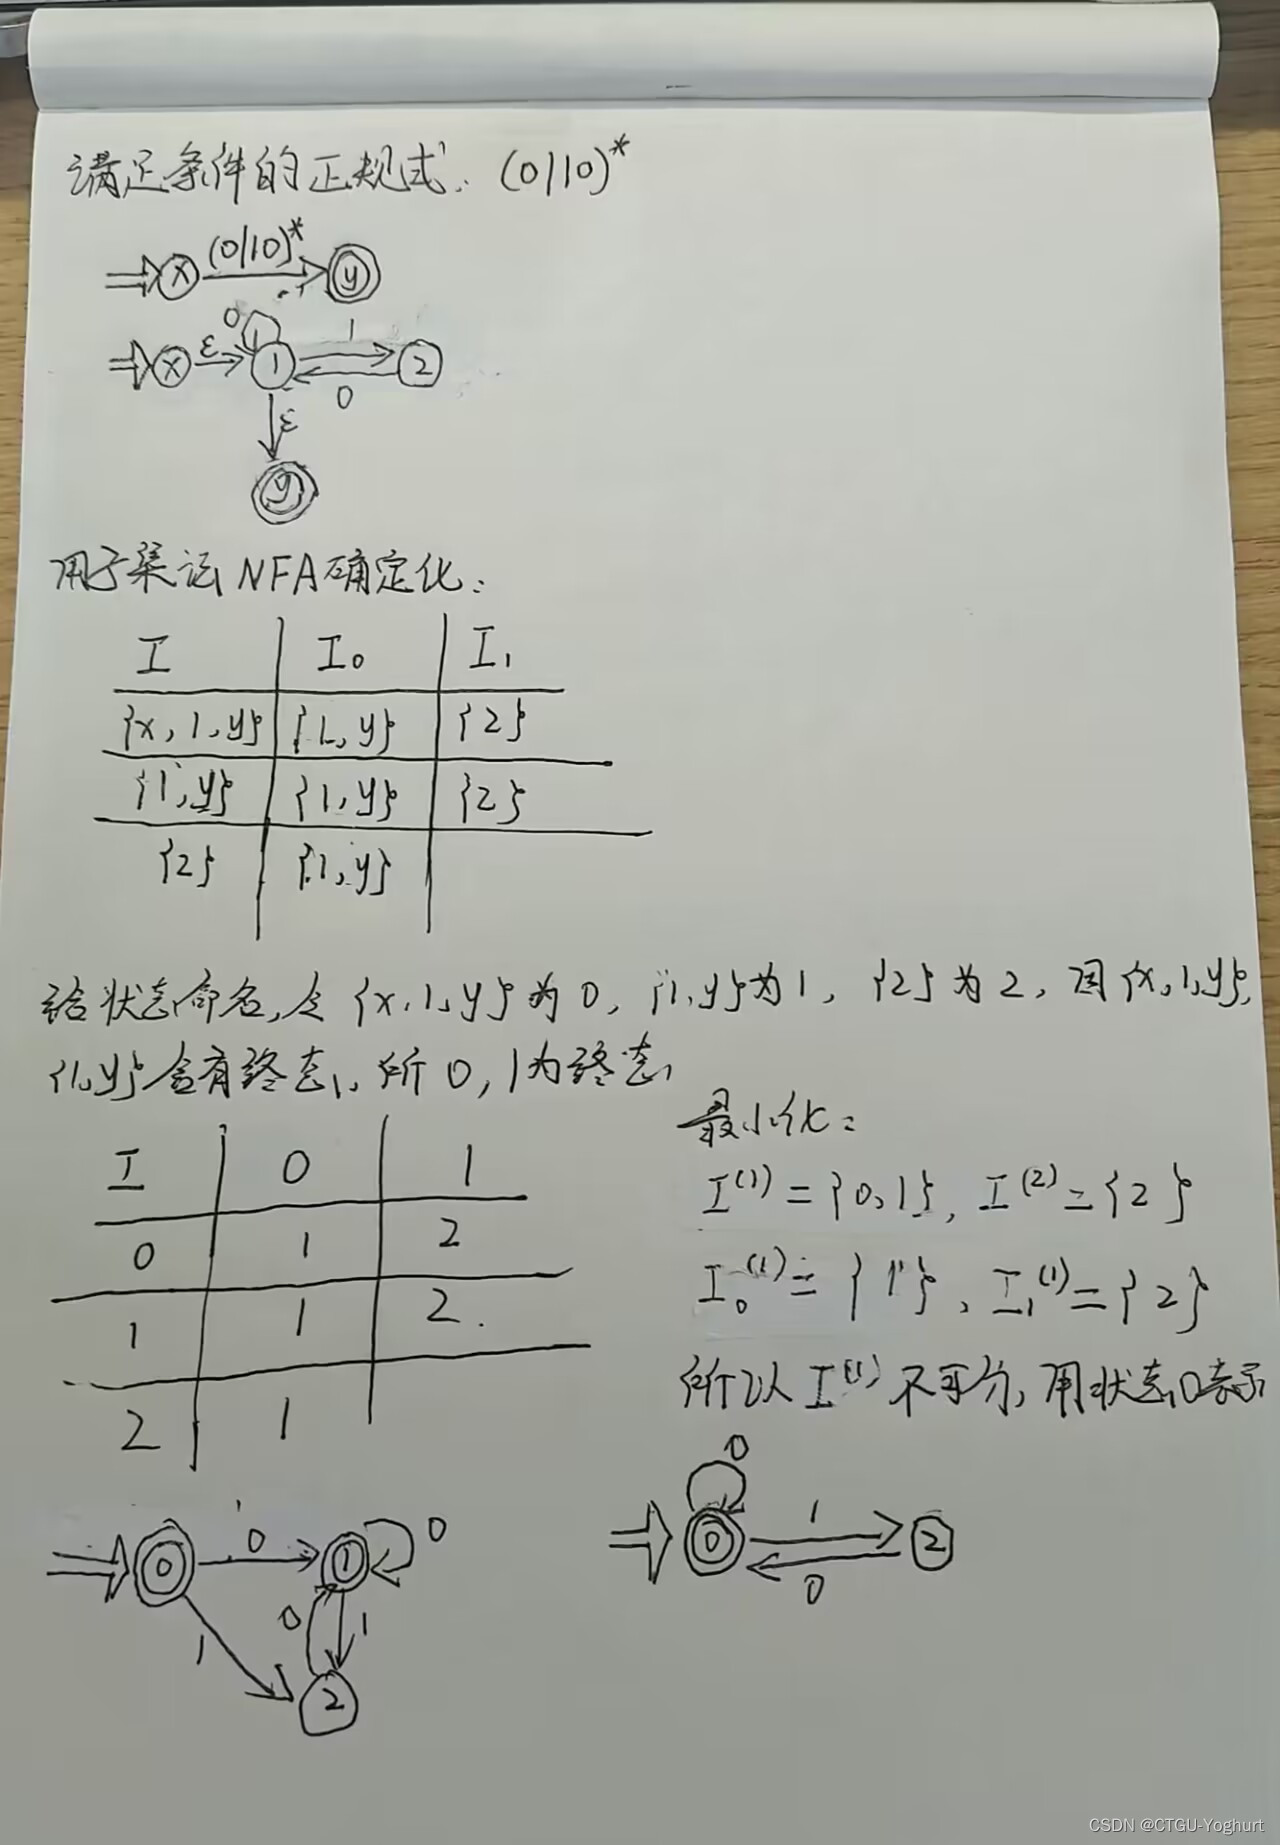 满足条件的正规式: (0|10)*
(0|10)*
X y
0 1
X ε 1 2
0
ε
y
用子集法NFA确定化:
I I₀ I₁
{x,1,y} {1,y} {2}
{1,y} {1,y} {2}
{2} {1,y}
给状态命名,令{x,1,y}为0,{1,y}为1,{2}为2,因{x,1,y},
{1,y}含有终态,所0,1为终态
最小化:
I 0 1
I⁽¹⁾={0,1}, I⁽²⁾={2}
0 1 2
I₀⁽¹⁾={1}, I₁⁽¹⁾={2}
1 1 2.
所以I⁽¹⁾不可分,用状态0表示
2 1
0
0 0 1 0
1 0 1
2
0 1 2
0
CSDN @CTGU-Yoghurt